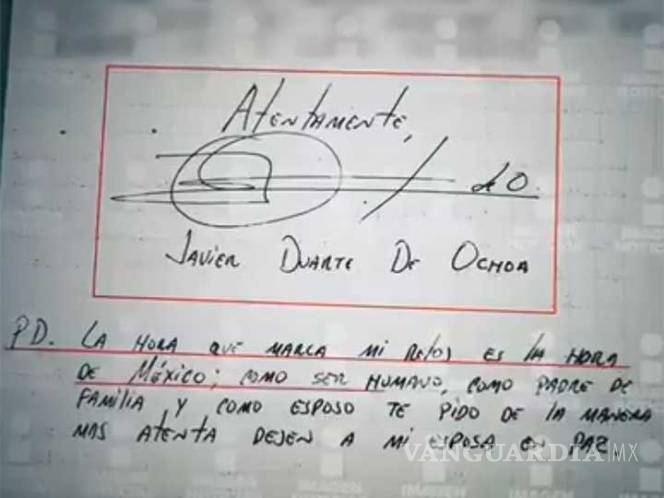 Atentamente,
d O.
Javier Duarte De Ochoa
PD. La hora que marca mi reloj es la hora
de México; como ser humano, como padre de
familia y como esposo te pido de la manera
mas atenta dejen a mi esposa en paz
VANGUARDIA MX